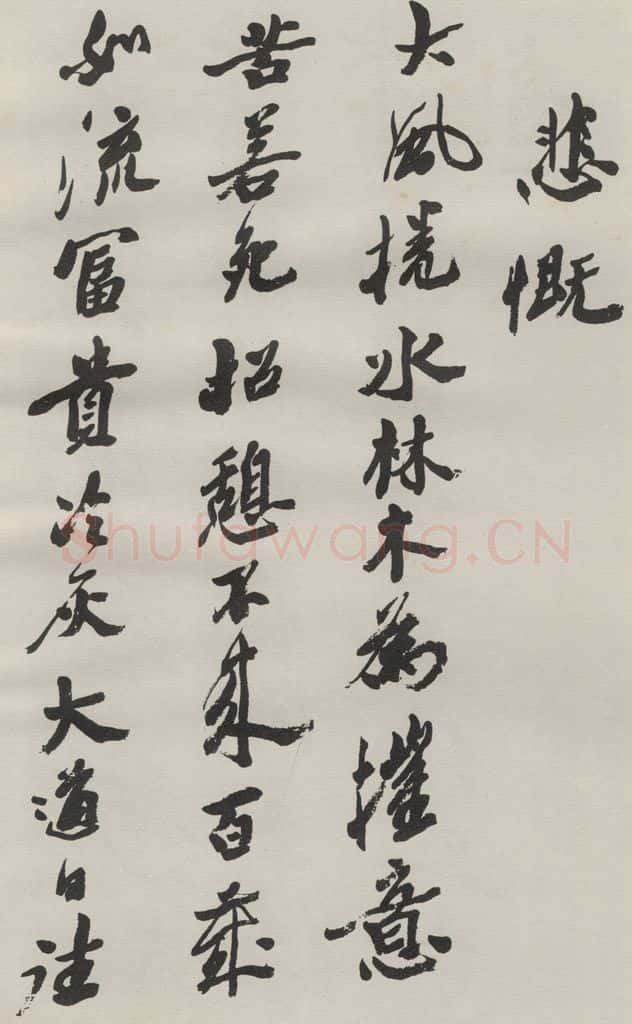 悲慨
大風捲水林木為摧意
苦若死招憩不來百歲
如流富貴冷灰大道日往
Shufawang.CN